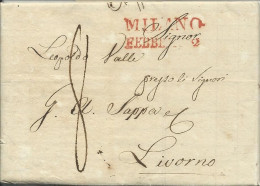 MILANO
FEBBR 2
Signor
Leopoldo Valle
presso li Signori
G. A. Sappa e C
Livorno
8